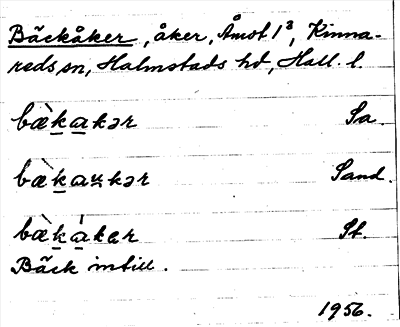 Bäckåker, åker, Åmot 1³, Kinna-
reds sn, Halmstads hd, Hall. l.
bæ̀kakər Sa.
bæ̀kaukər Sand.
bæ̀kákər St.
Bäck intill.
1956.